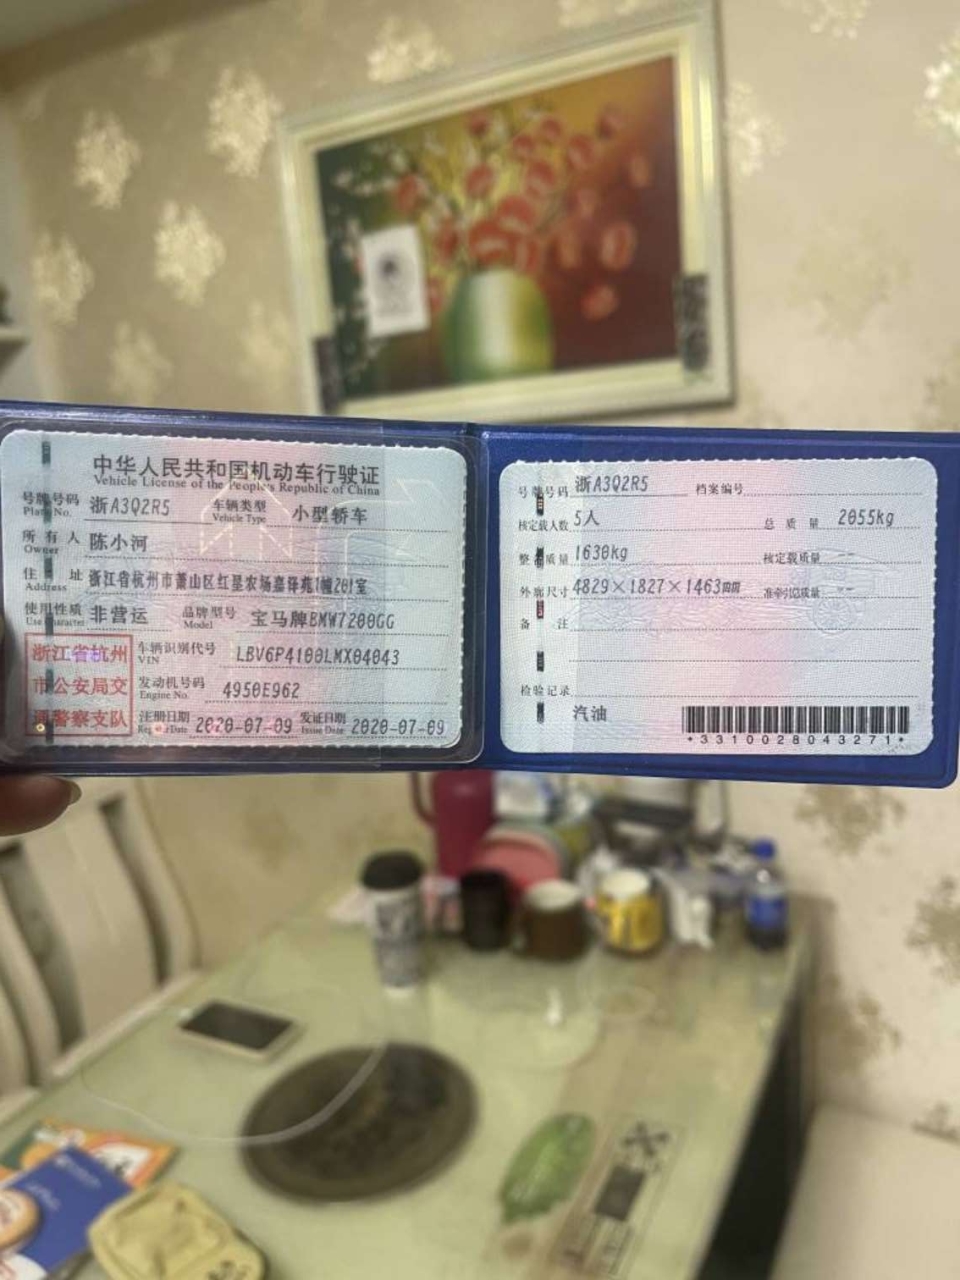 中华人民共和国机动车行驶证
Vehicle License of the People's Republic of China
号牌号码 浙A3Q2R5 车辆类型 小型轿车
Plate No. Vehicle Type
所有人 陈小河
Owner
住址 浙江省杭州市萧山区红垦农场嘉泽苑1幢201室
Address
使用性质 非营运 品牌型号 宝马牌BMW7200GG
Use Character Model
浙江省杭州
市公安局交
通警察支队
车辆识别代号 LBV6P4100LMX04043
VIN
发动机号码 4950E962
Engine No.
注册日期 2020-07-09 发证日期 2020-07-09
Register Date Issue Date
号牌号码 浙A3Q2R5 档案编号
核定载人数 5人 总质量 2055kg
整备质量 1630kg 核定载质量 --
外廓尺寸 4829×1827×1463mm 准牵引总质量 --
备注
检验记录
汽油
*3310028043271*